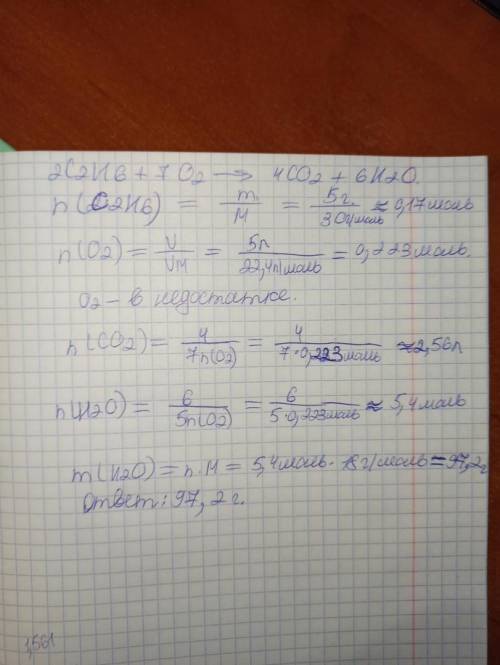 2C2H6 + 7O2 → 4CO2 + 6H2O.
n(C2H6) = m/M = 5г./30г/моль ≈ 0,17 моль
n(O2) = V/VM = 5л/22,4л/моль = 0,223 моль.
O2 – в недостатке.
n(CO2) = 4/7n(O2) = 4/7·0,223моль ≈ 2,56л
n(H2O) = 6/5n(O2) = 6/5·0,223моль ≈ 5,4моль
m(H2O) = n·M = 5,4моль · 18г/моль = 97,2г
Ответ: 97,2г.